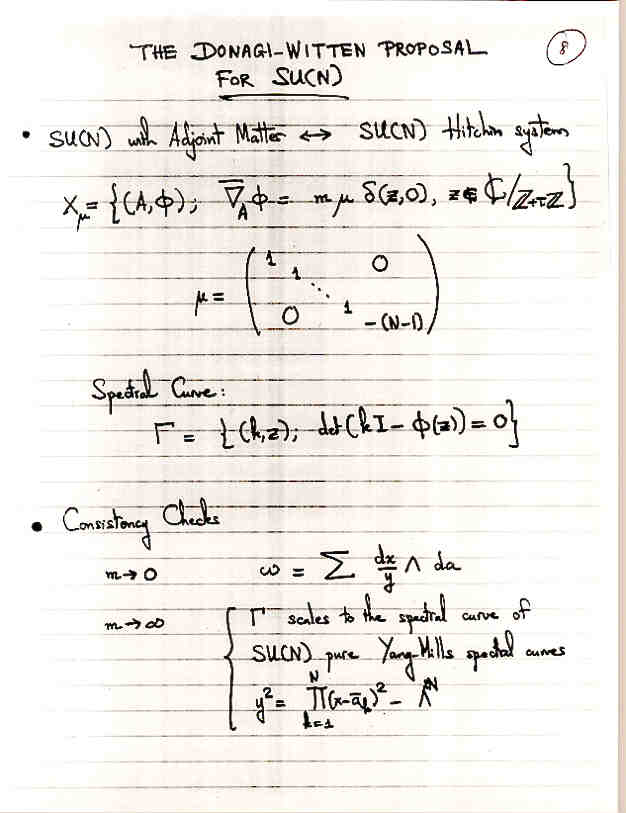 THE DONAGI-WITTEN PROPOSAL
8
FOR SU(N)
• SU(N) with Adjoint Matter ↔ SU(N) Hitchin system
X_μ = {(A,ϕ); ∇̄_A ϕ = m μ δ(z,0), z∈ ℂ/ℤ+τℤ}
μ = ( 1 1 ⋱ 1 -(N-1) 0 0 )
Spectral Curve:
Γ = {(k,z); det(kI - ϕ(z)) = 0}
• Consistency Checks
m→0 ω = Σ dx/y ∧ da
m→∞ { Γ scales to the spectral curve of
SU(N) pure Yang-Mills spectral curves
y² = ∏_{k=1}^{N} (x-ā_k)² - Λ^N